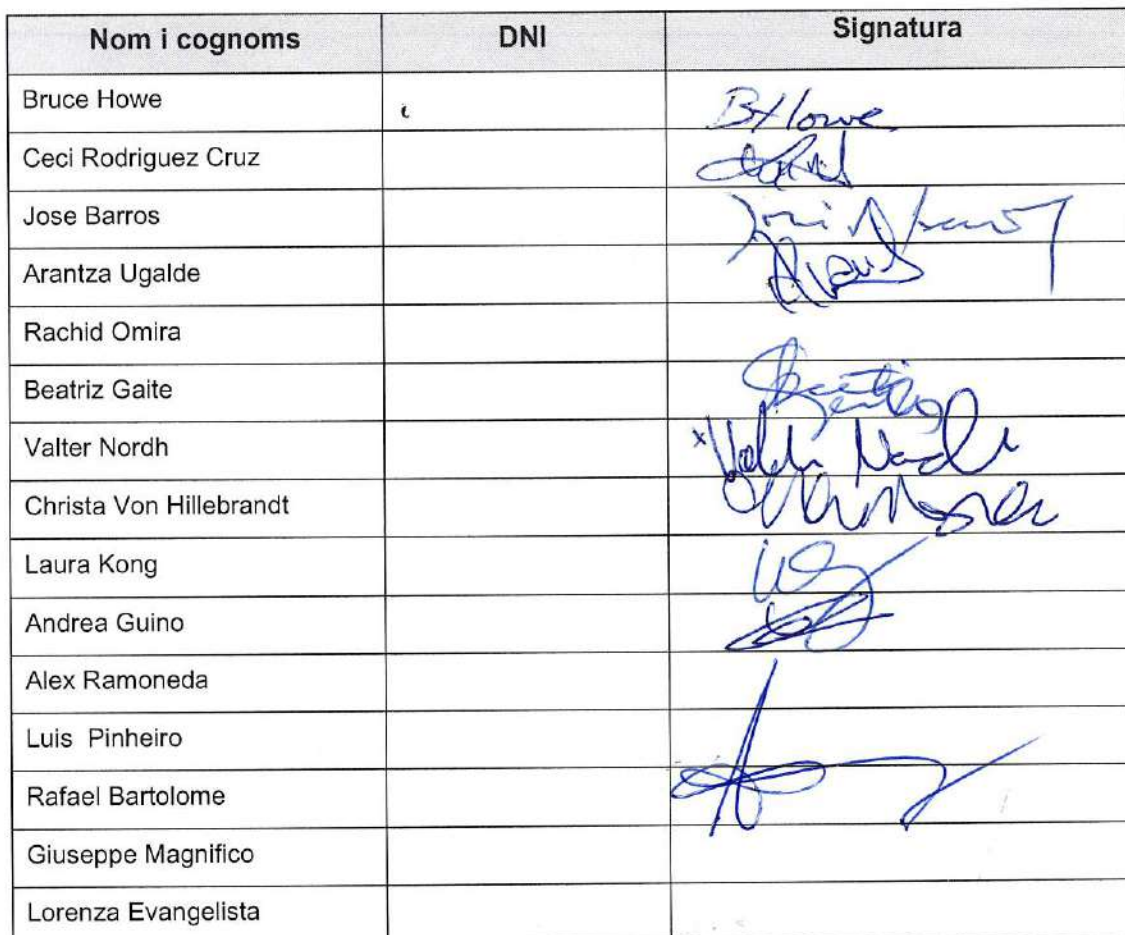 Nom i cognoms DNI Signatura
Bruce Howe BHowe
Ceci Rodriguez Cruz
Jose Barros
Arantza Ugalde
Rachid Omira
Beatriz Gaite
Valter Nordh Valter Nordh
Christa Von Hillebrandt
Laura Kong
Andrea Guino
Alex Ramoneda
Luis Pinheiro
Rafael Bartolome
Giuseppe Magnifico
Lorenza Evangelista